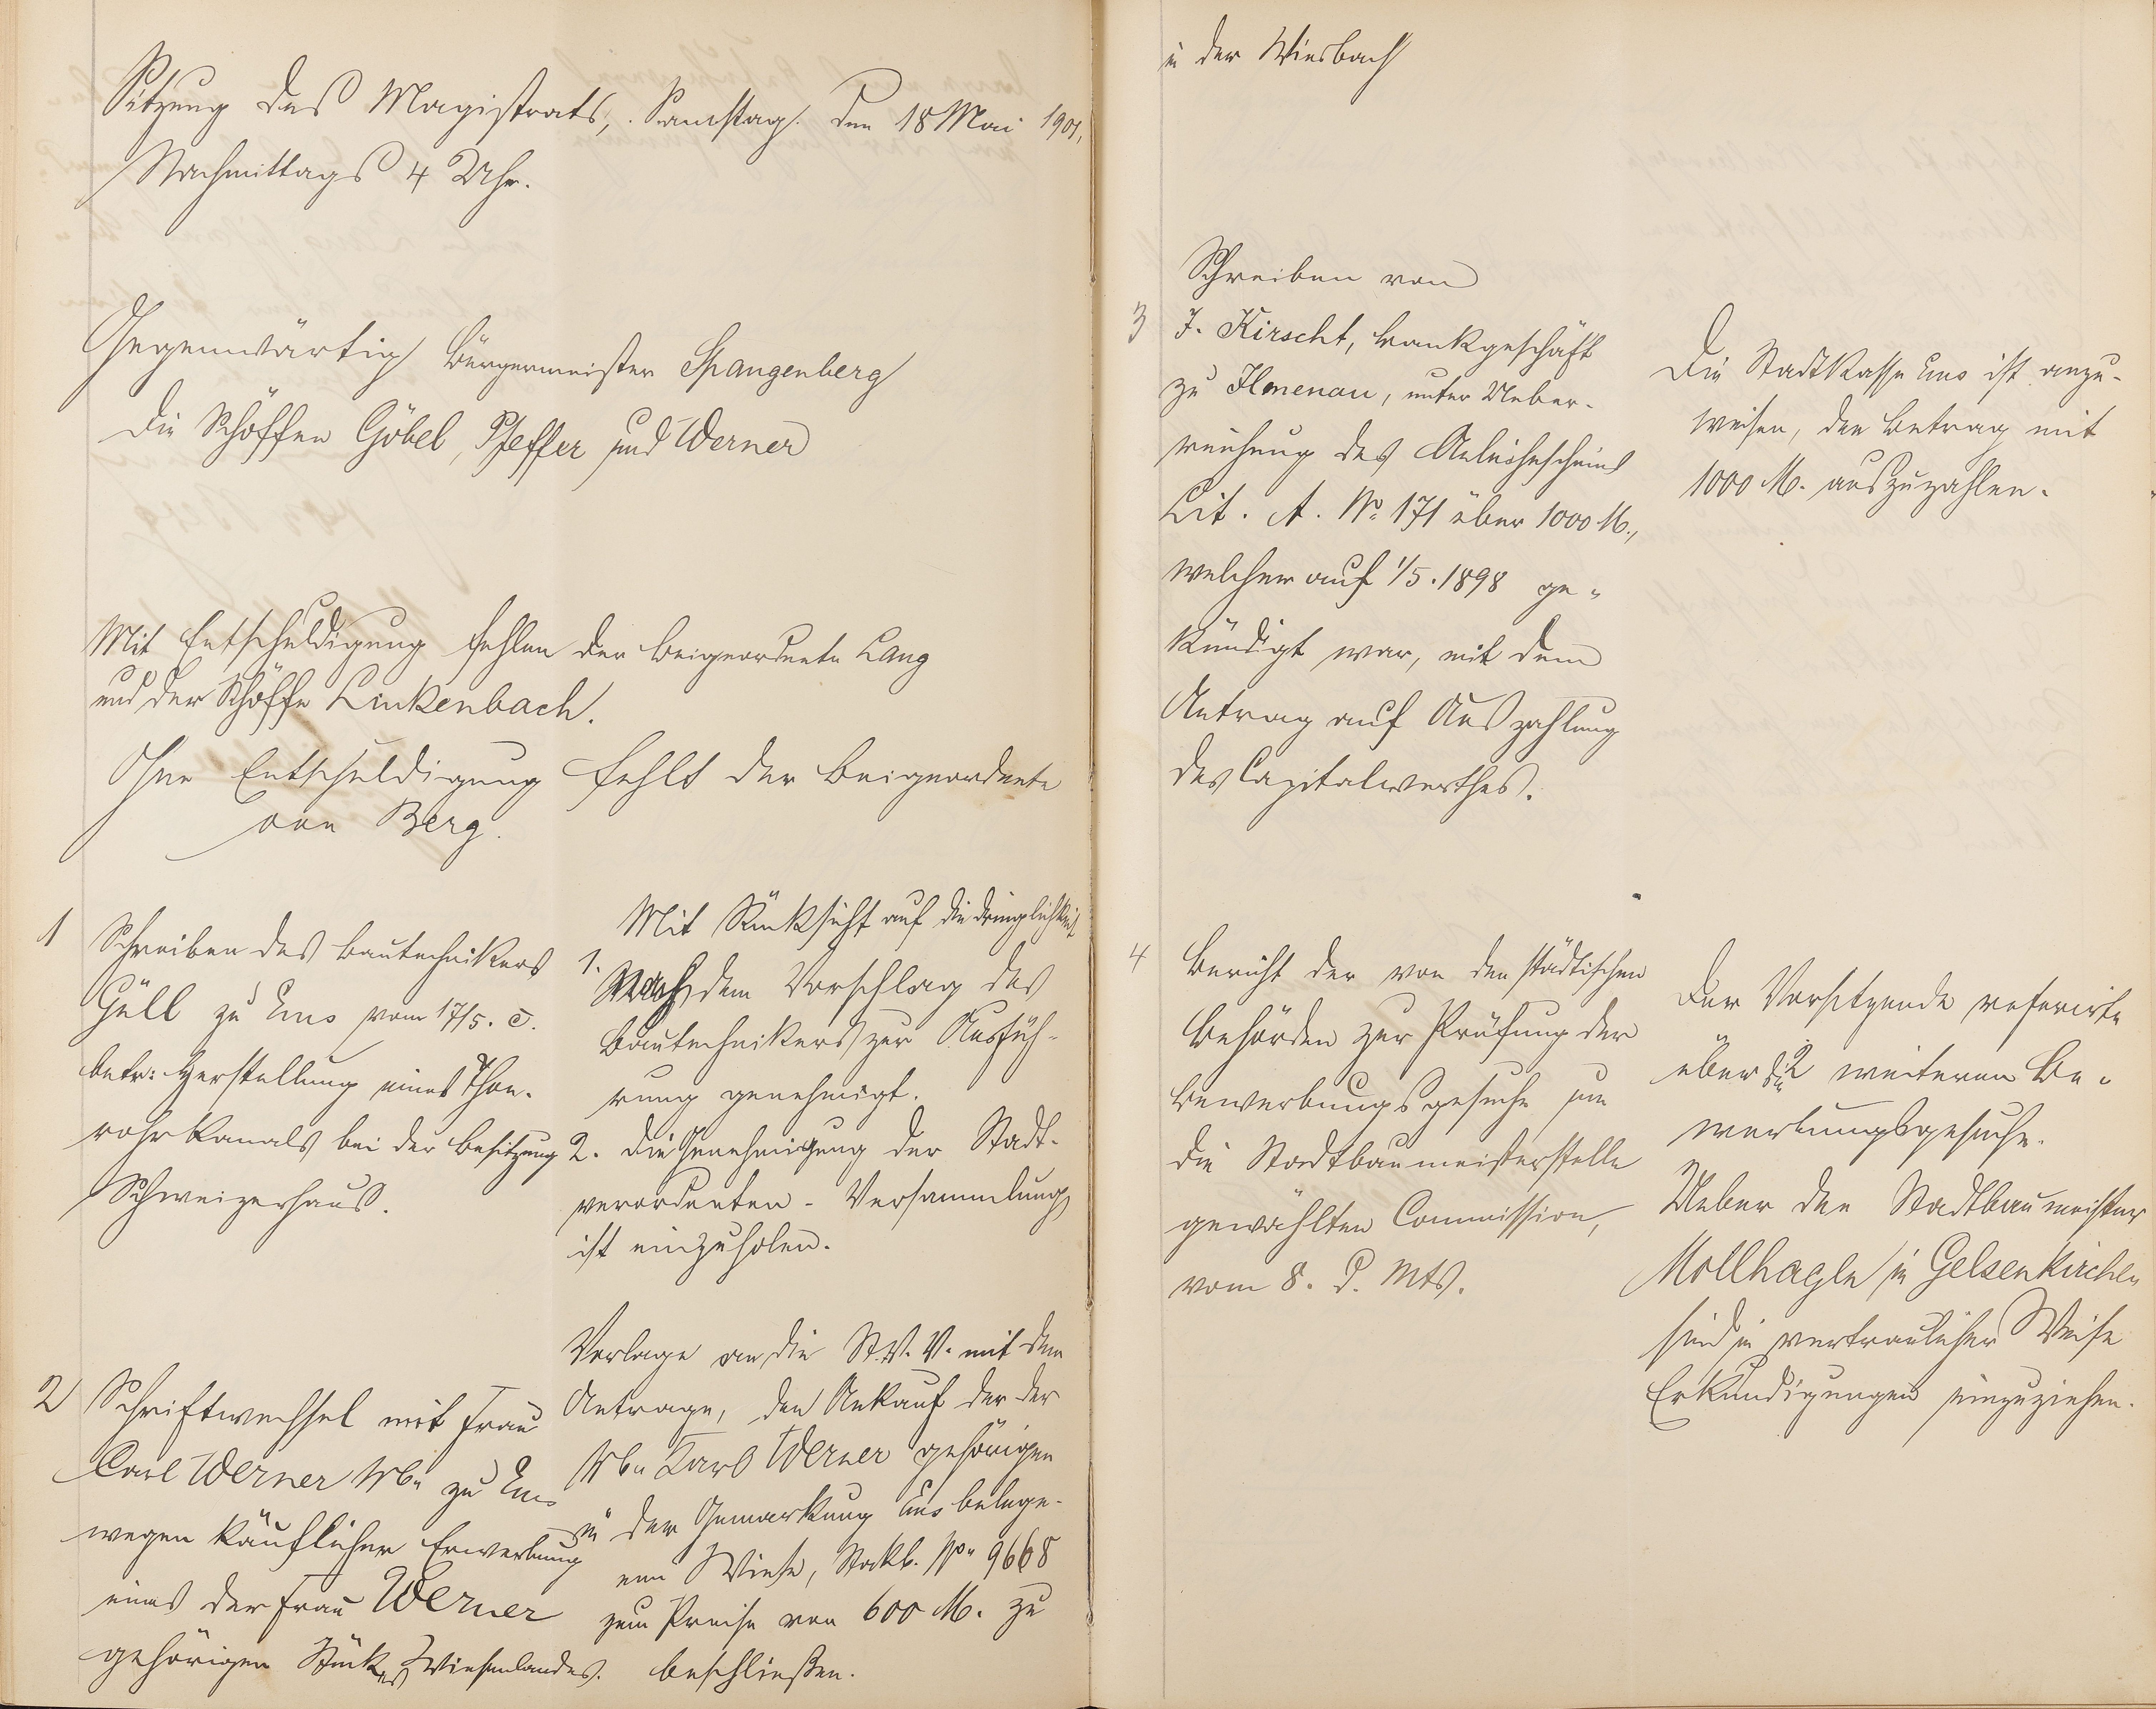 Sitzung des Magistrats, Samstag den 18 Mai 1901,
Nachmittags 4 Uhr.
Gegenwärtig Bürgermeister Spangenberg
die Schöffen Göbel, Pfeffer und Werner
Mit Entschuldigung fehlen der Beigeordnete Lang
und der Schöffe Linkenbach.
Ohne Entschuldigung fehlt der Beigeordnete
von Berg.
1
Schreiben des Bautechnikers
Güll zu Ems vom 17/5. c.
betr: Herstellung eines Thon-
rohrkanals bei der Besitzung
Schweizerhaus.
Mit Rücksicht auf die Dringlichkeit
1.
Nach dem Vorschlag des
Bautechnikers zur Ausfüh-
rung genehmigt.
2. Die Genehmigung der Stadt-
verordneten-Versammlung
ist einzuholen.
2
Schriftwechsel mit Frau
Carl Werner Wb. zu Ems
wegen käuflicher Erwerbung
eines der Frau Werner
gehörigen Stückes Wiesenlandes.
Vorlage an die St. V. V. mit dem
Antrage, den Ankauf der der
Wb. Karl Werner gehörigen
in der Gemarkung Ems belege-
nen Wiese, Stockb. No. 9668
zum Preise von 600 M. zu
beschließen.
in der Wiesbach
3
Schreiben von
J. Kirscht, Bankgeschäft
zu Ilmenau, unter Ueber-
reichung des Anleihescheins
Lit. A. No. 171 über 1000 M.,
welcher auf 1/5. 1898 ge-
kündigt war, mit dem
Antrag auf Auszahlung
des Capitalwerthes.
Die Stadtkasse Ems ist anzu-
weisen, den Betrag mit
1000 M. auszuzahlen.
4
Bericht der von den städtischen
Behörden zur Prüfung der
Bewerbungsgesuche um
die Stadtbaumeisterstelle
gewählten Commission,
vom 8. d. Mts.
Der Vorsitzende referirte
über die 2 weiteren Be-
werbungsgesuche.
Ueber den Stadtbaumeister
Mollhagen in Gelsenkirchen
sind in vertraulicher Weise
Erkundigungen einzuziehen.